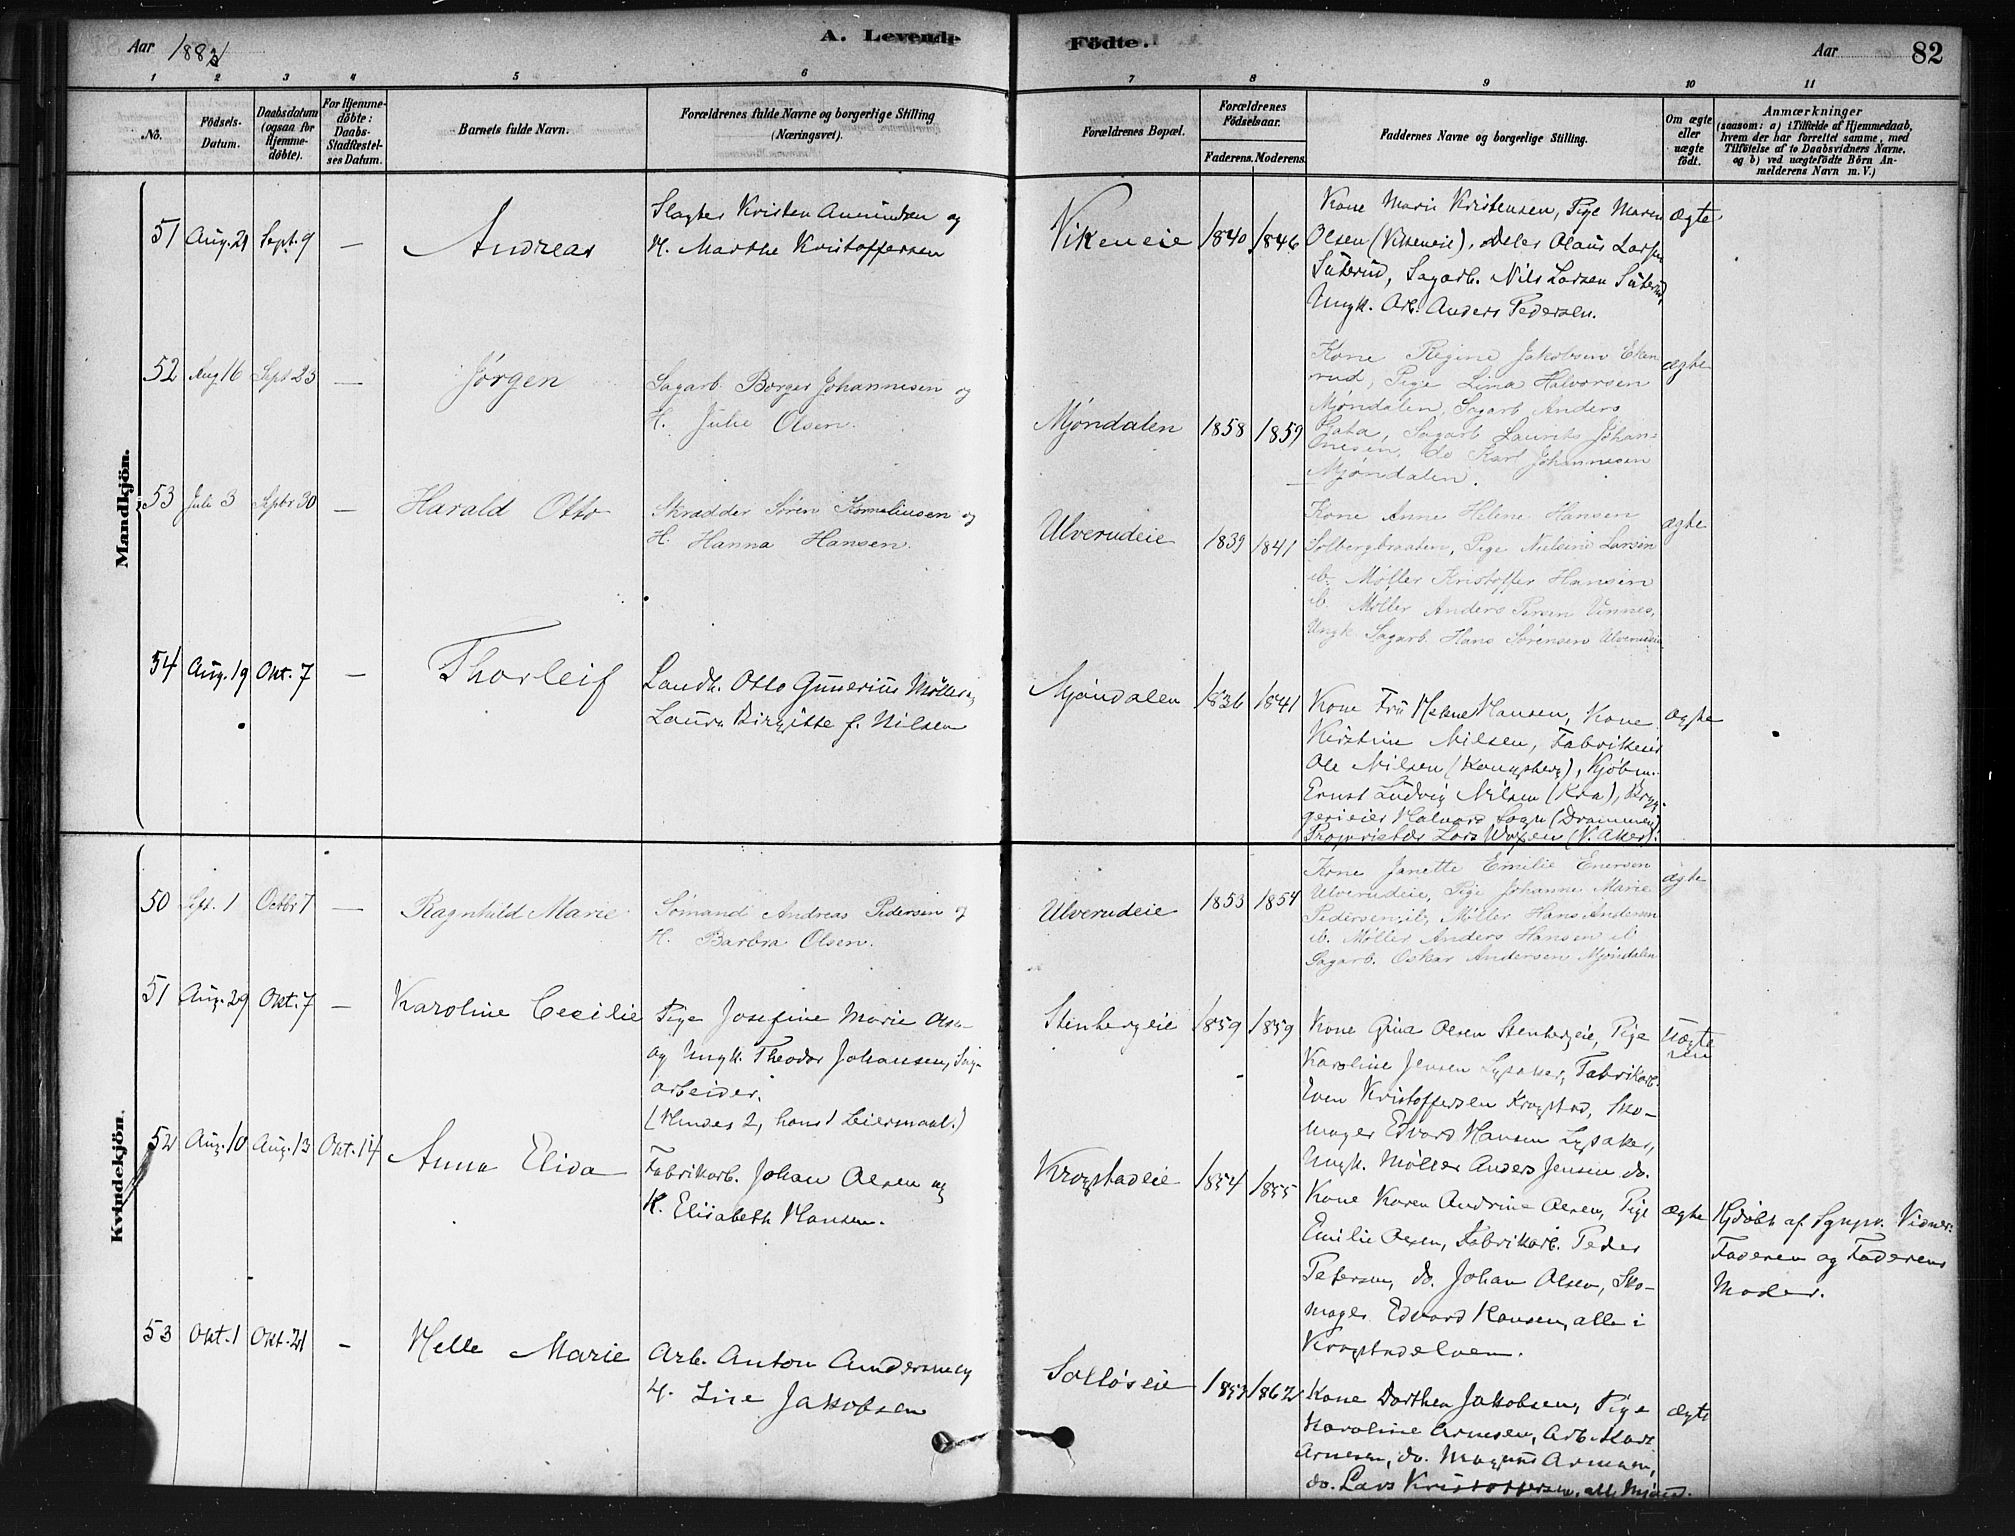 Aar 1883
A. Levende
Födte.
Aar
82
1 2 3 4 5 6 7 8 9 10 11
No.
Födsels-Datum.
Daabsdatum (ogsaa for Hjemme-döbte).
For Hjemme-döbte: Daabs-Stadfæstel-ses Datum.
Barnets fulde Navn.
Forældrenes fulde Navne og borgerlige Stilling (Næringsvei).
Forældrenes Bopæl.
Forældrenes Födselsaar.
Faderens. Moderens.
Faddernes Navne og borgerlige Stilling.
Om ægte eller uægte födt.
Anmærkninger
(saasom: a) i Tilfælde af Hjemmedaab,
hvem der har forrettet samme, med
Tilföielse af to Daabsvidners Navne,
og b) ved uægtefödte Börn An-
melderens Navn m. V.)
Mandkjön.
51 Aug. 21 Sept. 9 — Andreas
Slagter Kristen Amundsen og
H. Marthe Kristoffersen
Vikeneie 1840 1846
Kone Marie Kristensen, Pige Maren
Olsen (Vikeneie), Olaus Larsen
Sagarb. Nils Larsen
Ungk. Arb. Anders Pedersen.
ægte
52 Aug 16 Sept 23 — Jørgen
Sagarb. Borger Johannesen og
H. Julie Olsen.
Mjøndalen 1858 1859
Kone Regine Jakobsen Eken
rud, Pige Lina Halvorsen
Mjøndalen, Sagarb Anders
Gata, Sagarb Laurits Johan-
nesen, do Karl Johannesen
Mjøndalen.
ægte
53 Juli 3 Septbr 30 — Harald Otto
Skrædder Søren Korneliussen og
H. Hanna Hansen.
Ulverudeie 1839 1841
Kone Anne Helene Hansen
Solbergbraaten, Pige Nielsine Larsen
ib. Møller Kristoffer Hansen
ib. Møller Anders Persen Vinnes,
Ungk. Sagarb. Hans Sørensen Ulverudeie
ægte
54 Aug. 19 Okt. 7 — Thorleif
Landh. Otto Gunerius Møller og
Laura Birgitte f. Nilsen
Mjøndalen 1836 1841
Kone Fru Helene Hansen, Kone
Kirstine Nilsen, Fabrikeier
Ole Nilsen (Kongsberg), Kjøbm.
Ernst Ludvig Nilsen (Kra), Bryg-
gerieier Halvard Sogn (Drammen)
Proprietær Lars (V. Aker).
ægte
Kvindekjön.
50 Sept. 1 Octbr 7 — Ragnhild Marie
Sømand Andreas Pedersen og
H. Barbra Olsen.
Ulverudeie 1853 1854
Kone Janette Emilie Enersen
Ulverudeie, Pige Johanne Marie
Pedersen, ib, Møller Hans Andersen
ib. Møller Anders Hansen ib
Sagarb. Oskar Andersen Mjøndalen
ægte
51 Aug. 29 Okt. 7 — Karoline Cecilie
Pige Josefine Marie
og Ungk. Theodor Johansen, Sag-
arbeider.
(Hendes 2, hans 1 Leiermaal.)
Stenbergeie 1859 1859
Kone Gina Olsen Stenbergeie, Pige
Karoline Jensen Lysaker, Fabrikarb.
Even Kristoffersen Krogstad, Sko-
mager Edvard Hansen Lysaker,
Ungk. Møller Anders Jensen do.
Uægte
52 Aug. 10 Aug. 13 Okt. 14 Anna Elida
Fabrikarb. Johan Olsen og
H. Elisabeth Hansen.
Krogstadeie 1854 1855
Kone Karen Andrine Olsen, Pige
Emilie Olsen, Fabrikarb. Peder
Petersen, do. Johan Olsen, Sko-
mager Edvard Hansen, alle i
Krogstadelven.
ægte
Hjdøbt af Vidner:
Faderen og Faderens
Moder.
53 Okt. 1 Okt. 21 — Helle Marie
Arb. Anton Andersen og
H. Lise Jakobsen
Solløseie 1853 1862
Kone Dorthea Jakobsen, Pige
Karoline Arnesen, Arb. Karl
Arnesen, do. Magnus Arnesen,
do. Lars Kristoffersen, alle
ægte